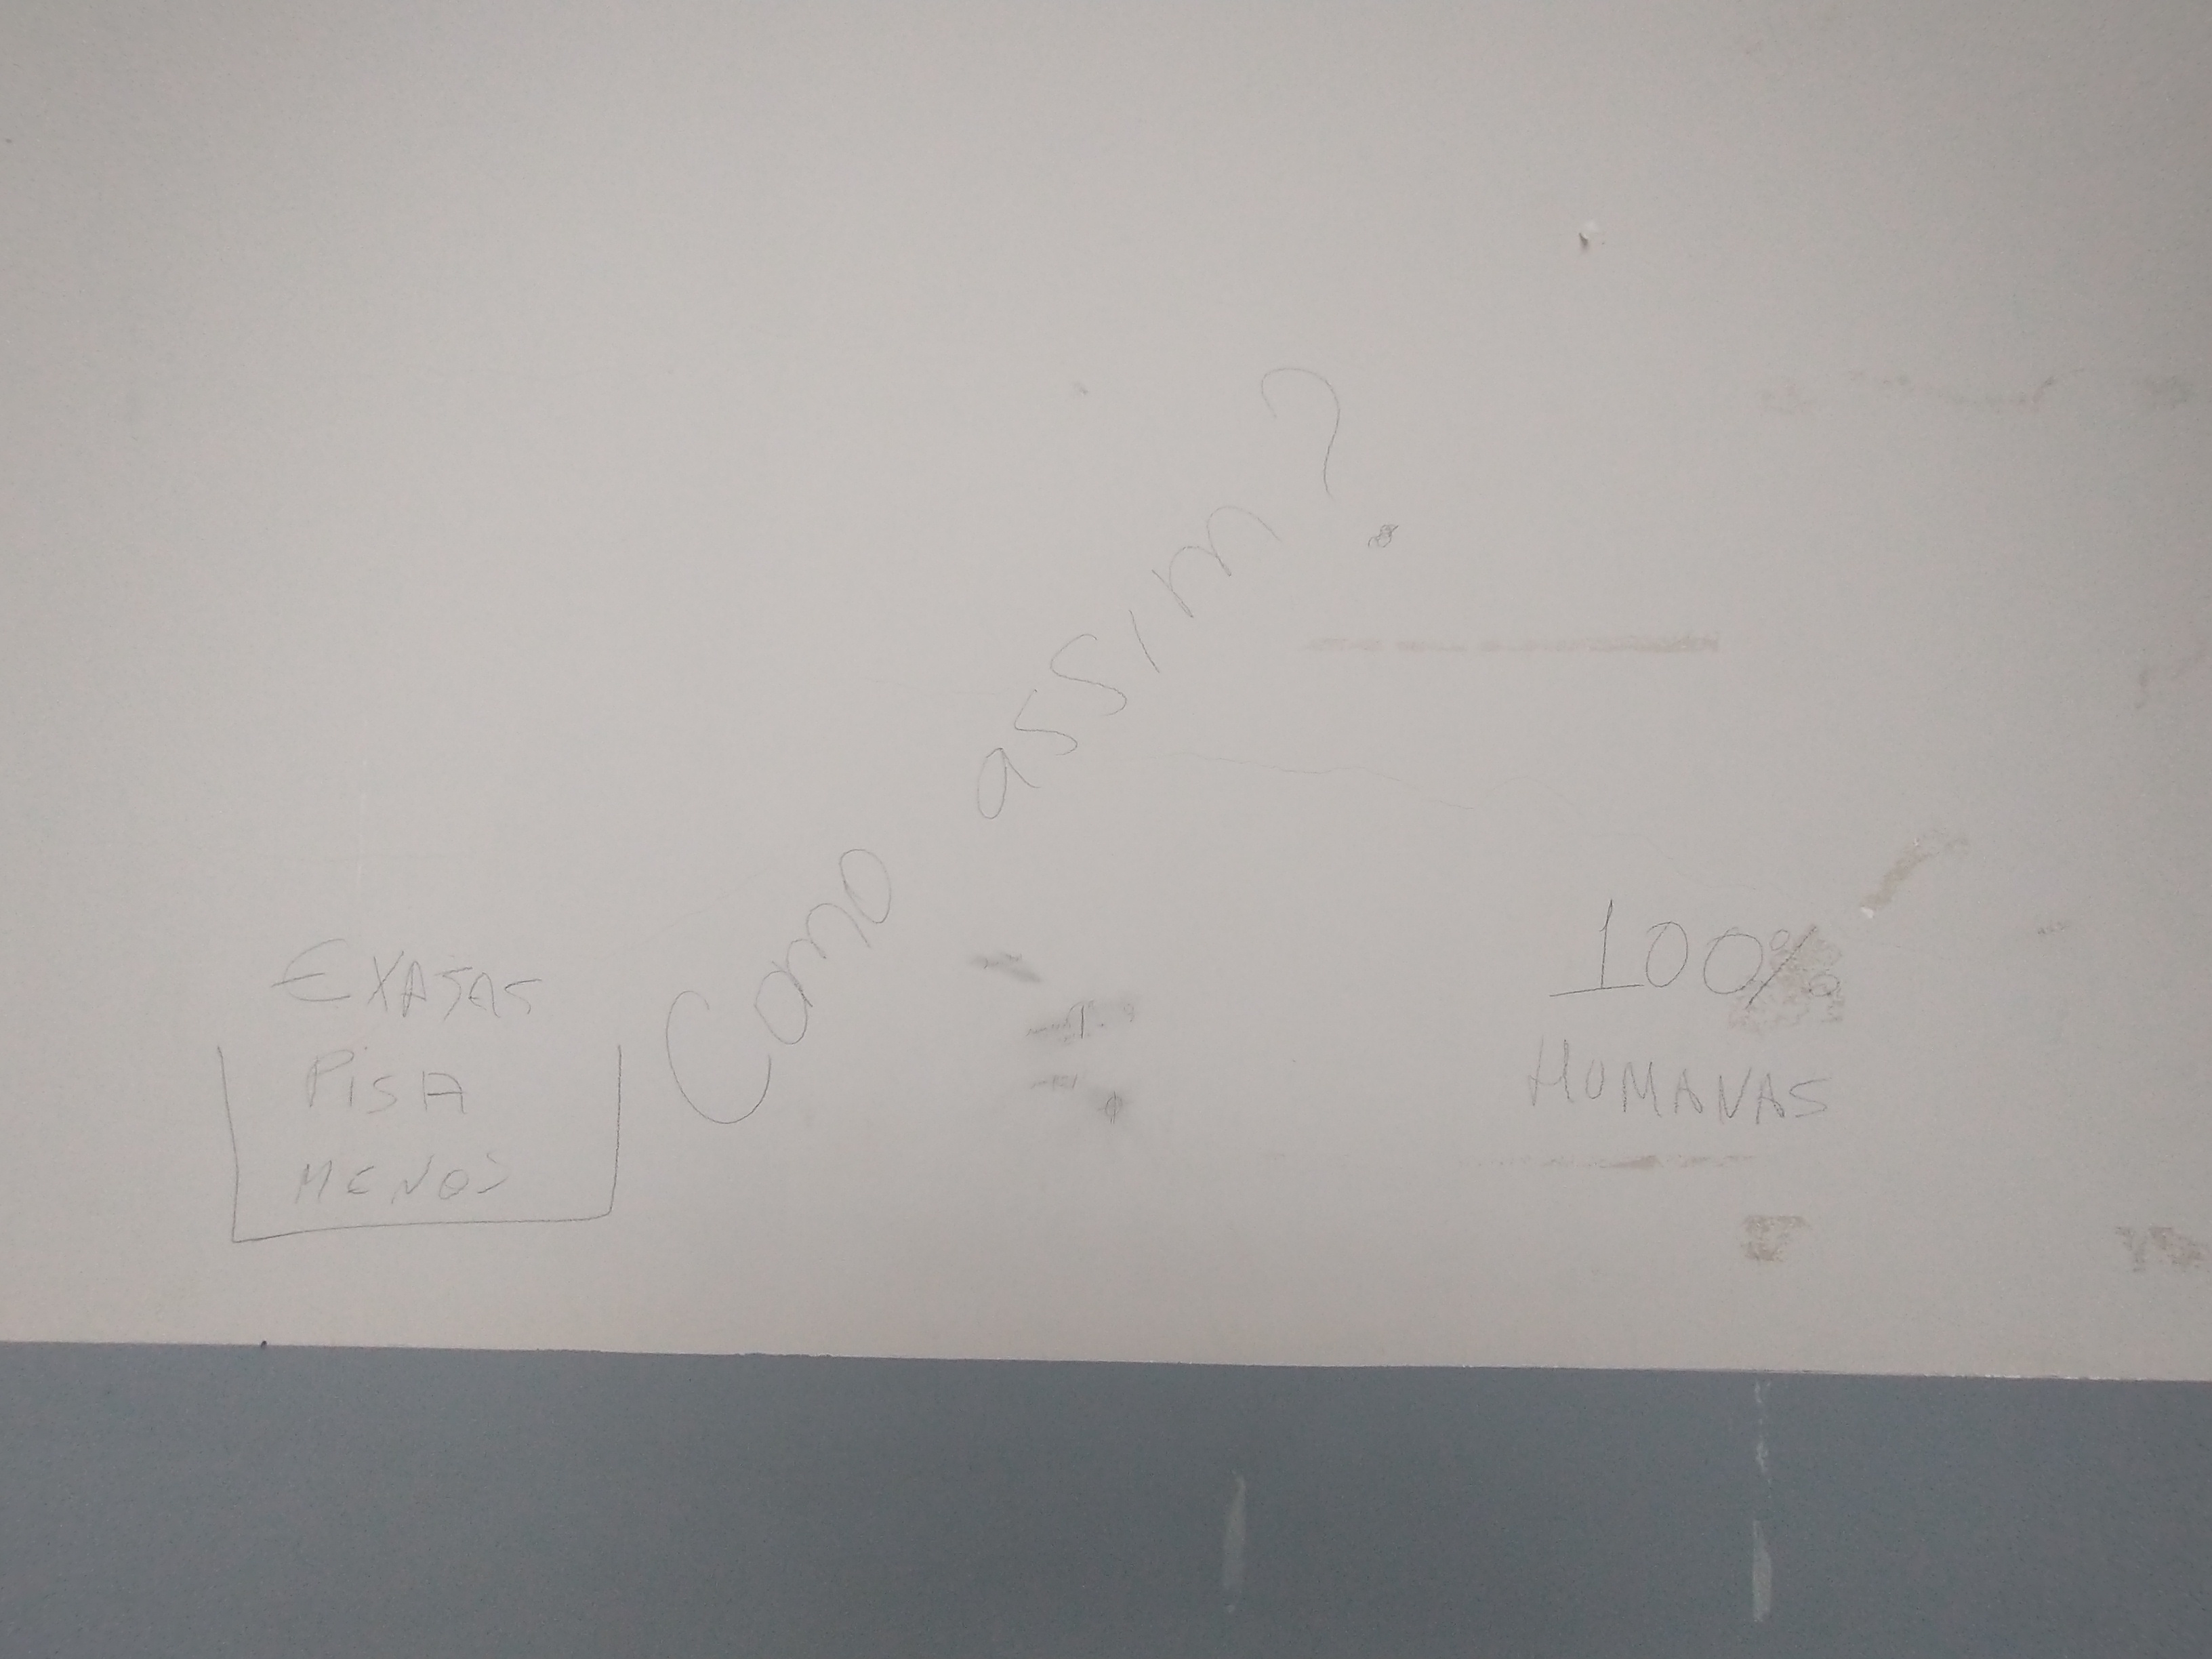 EXATAS
PISA
MENOS
Como assim?
100%
HUMANAS